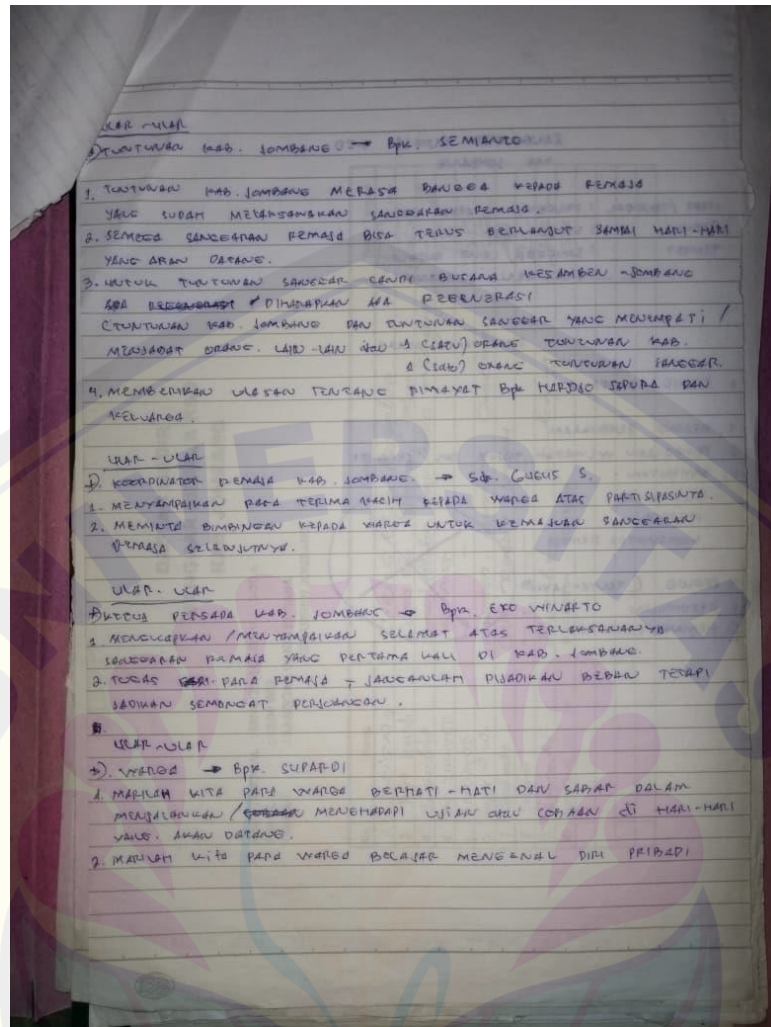 ULAR-ULAR
TUNTUNAN KAB. JOMBANG → Bpk. SEMIANTO
1. TUNTUNAN KAB. JOMBANG MERASA BANGGA KEPADA REMAJA
YANG SUDAH MELAKSANAKAN SANGGARAN REMAJA.
2. SEMOGA SANGGARAN REMAJA BISA TERUS BERLANJUT SAMPAI HARI-HARI
YANG AKAN DATANG.
3. UNTUK TUNTUNAN SANGGAR CANDI BUSANA KESAMBEN - JOMBANG
DIHARAPKAN ADA REGENERASI
(TUNTUNAN KAB. JOMBANG DAN TUNTUNAN SANGGAR YANG MENEMPATI /
MENJABAT ORANG. LAIN-LAIN atau 1 (SATU) ORANG TUNTUNAN KAB.
1 (SATU) ORANG TUNTUNAN SANGGAR.
4. MEMBERIKAN ULASAN TENTANG RIWAYAT Bpk HARDJO SAPURA DAN
KELUARGA.
ULAR-ULAR
KOORDINATOR REMAJA KAB. JOMBANG. → Sdr. GUGUS S.
1. MENYAMPAIKAN RASA TERIMA KASIH KEPADA WARGA ATAS PARTISIPASINYA.
2. MEMINTA BIMBINGAN KEPADA WARGA UNTUK KEMAJUAN SANGGARAN
REMAJA SELANJUTNYA.
ULAR-ULAR
KETUA PERSADA KAB. JOMBANG → Bpk. EKO WINARTO
1. MENGUCAPKAN / MENYAMPAIKAN SELAMAT ATAS TERLAKSANANYA
SANGGARAN REMAJA YANG PERTAMA KALI DI KAB. JOMBANG.
2. TUGAS PARA REMAJA = JANGANLAH DIJADIKAN BEBAN TETAPI
JADIKAN SEMANGAT PERJUANGAN.
ULAR-ULAR
WARGA → Bpk. SUPARDI
1. MARILAH KITA PARA WARGA BERHATI-HATI DAN SABAR DALAM
MENJALANKAN / MENGHADAPI UJIAN atau COBAAN di HARI-HARI
YANG. AKAN DATANG.
2. MARILAH kita PARA WARGA BELAJAR MENGENAL DIRI PRIBADI